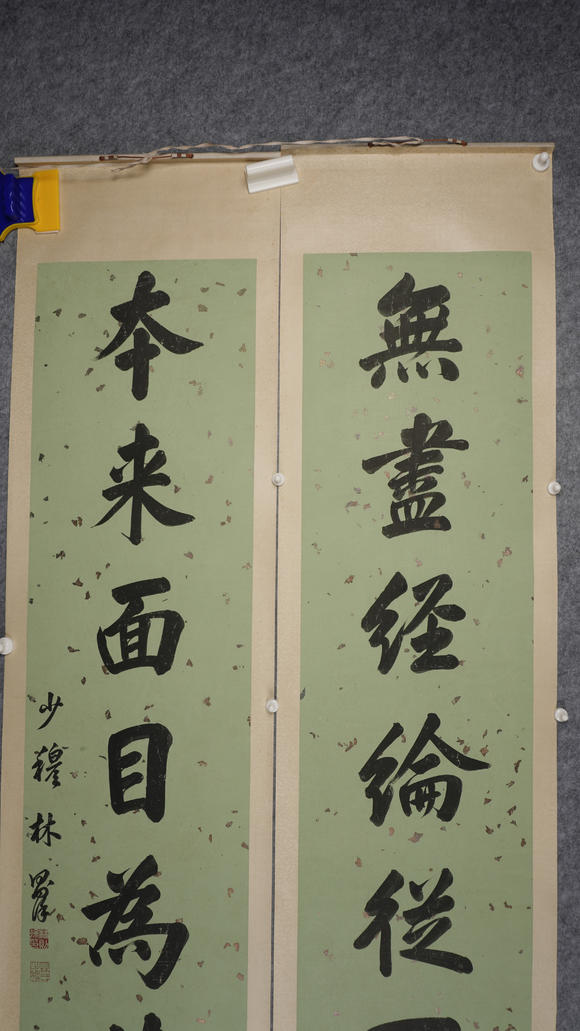 無盡经綸從
本来面目為
少穆林則徐